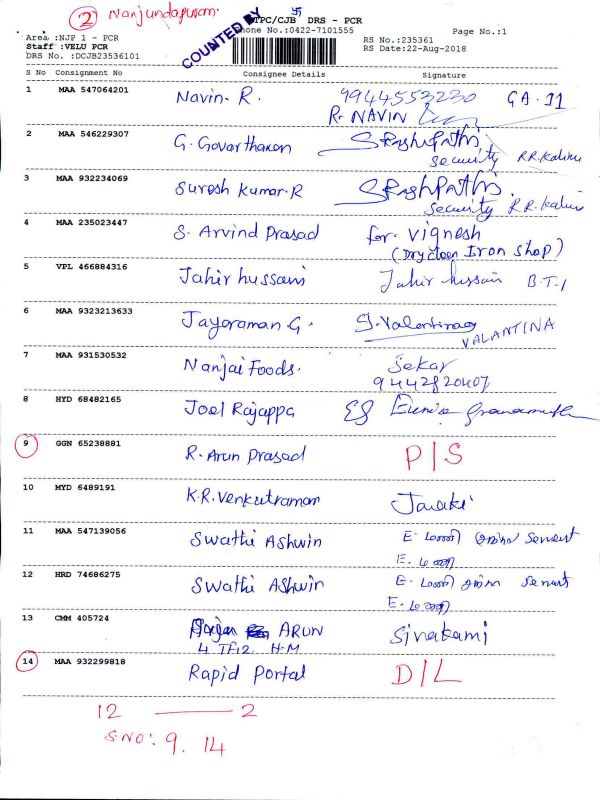 2 Nanjundapuram.
TPC/CJB DRS - PCR
COUNTED BY
Area :NJP 1 - PCR
Phone No.:0422-7101555
Page No.:1
Staff :VELU PCR
RS No.:235361
DRS No. :DCJB23536101
RS Date:22-Aug-2018
S No Consignment No Consignee Details Signature
1 MAA 547064201 Navin. R. 9944553230 GA-11
R. NAVIN
2 MAA 546229307 G. Govarthanan
Security
3 MAA 932234069 Suresh Kumar.R
Security
4 MAA 235023447 S. Arvind Prasad for. Vignesh
(Dryclean Iron Shop)
5 VPL 466884316 Jahir hussain Jahir hussain B.T.1
6 MAA 9323213633 Jayaraman G.
VALANTINA
7 MAA 931530532 Nanjai Foods. Sekar
9442820407
8 HYD 68482165 Joel Rajappa
9 GGN 65238881 R. Arun Prasad P/S
10 MYD 6489191 K.R. Venkutraman Janaki
11 MAA 547139056 Swathi Ashwin E. மணி servent
E. மணி
12 HRD 74686275 Swathi Ashwin E. மணி servent
E. மணி
13 CMM 405724 ARUN Sivakami
4 TF12 H-M
14 MAA 932299818 Rapid Portal D/L
12 — 2
S.NO: 9. 14